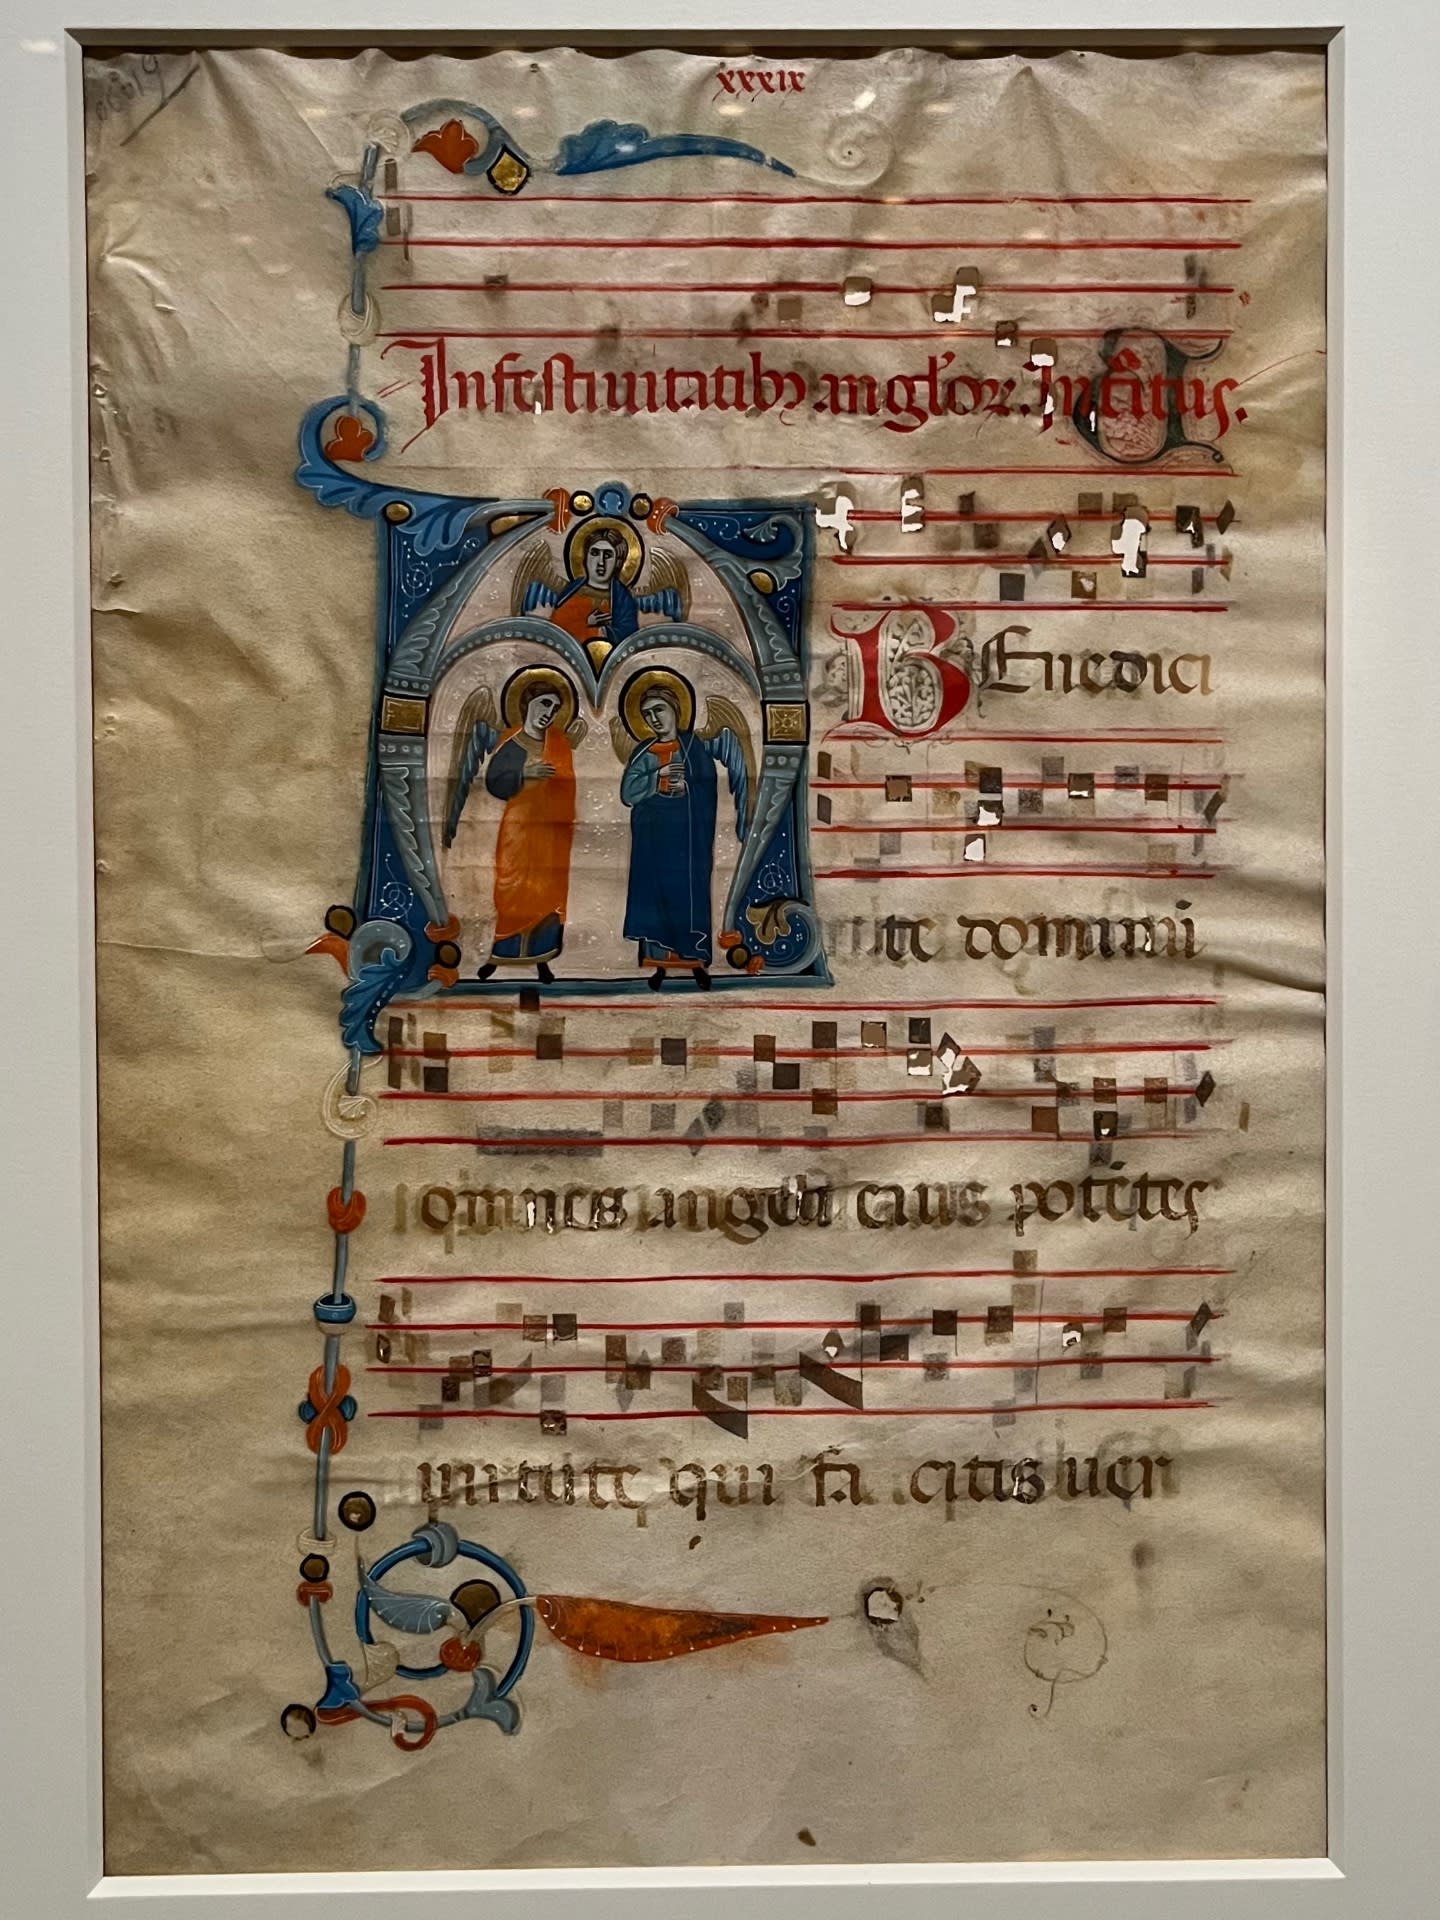 xxxix
In festiuitatib₃ anglꝰoꝝ. Intꝛ̃itus.
BEnedici
te domini
omnes angeli eius potẽtes
uirtute qui fa citis uer